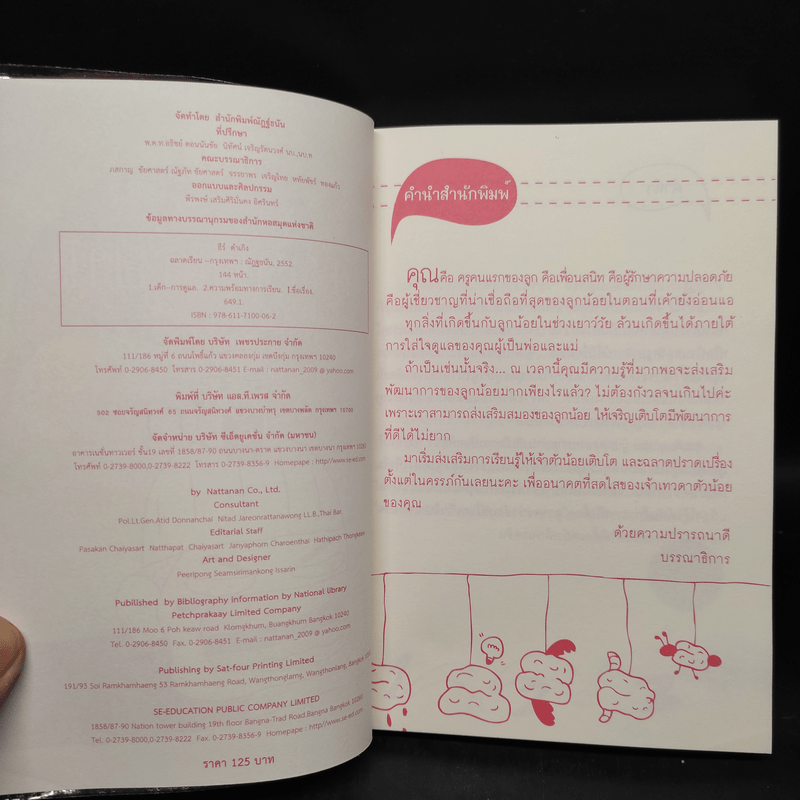 จัดทำโดย สำนักพิมพ์ณัฏฐ์ธนัน
ที่ปรึกษา
พ.ต.ท.อธิชย์ ดอนนันชัย นิทัศน์ เจริญรัตนวงศ์ นบ.,นบ.ท
คณะบรรณาธิการ
ภสกาญ ชัยศาสตร์ ณัฐภัท ชัยศาสตร์ จรรยาพร เจริญไทย หทัยพัชร์ ทองแก้ว
ออกแบบและศิลปกรรม
พีรพงษ์ เสริมศิริมั่นคง อิศรินทร์
ข้อมูลทางบรรณานุกรมของสำนักหอสมุดแห่งชาติ
ธีร์ คำเกิง
ฉลาดเรียน --กรุงเทพฯ : ณัฏฐ์ธนัน, 2552
144 หน้า.
1.เด็ก--การดูแล. 2.ความพร้อมทางการเรียน I.ชื่อเรื่อง.
649.1.
ISBN : 978-611-7100-06-2
จัดพิมพ์โดย บริษัท เพชรประกาย จำกัด
111/186 หมู่ที่ 6 ถนนโพธิ์แก้ว แขวงคลองกุ่ม เขตบึงกุ่ม กรุงเทพฯ 10240
โทรศัพท์ 0-2906-8450 โทรสาร 0-2906-8451 E-mail : nattanan_2009 @ yahoo.com
พิมพ์ที่ บริษัท แอล.ที.เพรส จำกัด
502 ซอยจรัญสนิทวงศ์ 65 ถนนจรัญสนิทวงศ์ แขวงบางบำหรุ เขตบางพลัด กรุงเทพฯ 10700
จัดจำหน่าย บริษัท ซีเอ็ดยูเคชั่น จำกัด (มหาชน)
อาคารเนชั่นทาวเวอร์ ชั้น19 เลขที่ 1858/87-90 ถนนบางนา-ตราด แขวงบางนา เขตบางนา กรุงเทพฯ 10260
โทรศัพท์ 0-2739-8000,0-2739-8222 โทรสาร 0-2739-8356-9 Homepape : http//www.se-ed.com
by Nattanan Co., Ltd.
Consultant
Pol.Lt.Gen.Atid Donnanchai Nitad Jareonrattanawong LL.B.,Thai Bar.
Editarial Staff
Pasakan Chaiyasart Natthapat Chaiyasart Janyaphorn Charoenthai Hathipach Thongkaew
Art and Designer
Peeripong Seamsirimankong Issarin
Publilshed by Bibliography information by National library
Petchprakaay Limited Company
111/186 Moo 6 Poh keaw road Klorngkhum, Buengkhum Bangkok 10240
Tel. 0-2906-8450 Fax. 0-2906-8451 E-mail : nattanan_2009 @ yahoo.com
Publishing by Sat-four Printing Limited
191/93 Soi Ramkhamhaeng 53 Ramkhamhaeng Road, Wangthonglarng, Wangthonlang, Bangkok
SE-EDUCATION PUBLIC COMPANY LIMITED
1858/87-90 Nation tower building 19th floor Bangna-Trad Road.Bangna Bangkok 10260
Tel. 0-2739-8000,0-2739-8222 Fax. 0-2739-8356-9 Homepape : http//www.se-ed.com
ราคา 125 บาท
คำนำสำนักพิมพ์
คุณคือ ครูคนแรกของลูก คือเพื่อนสนิท คือผู้รักษาความปลอดภัย
คือผู้เชี่ยวชาญที่น่าเชื่อถือที่สุดของลูกน้อยในตอนที่เค้ายังอ่อนแอ
ทุกสิ่งที่เกิดขึ้นกับลูกน้อยในช่วงเยาว์วัย ล้วนเกิดขึ้นได้ภายใต้
การใส่ใจดูแลของคุณผู้เป็นพ่อและแม่
ถ้าเป็นเช่นนั้นจริง... ณ เวลานี้คุณมีความรู้ที่มากพอจะส่งเสริม
พัฒนาการของลูกน้อยมากเพียงไรแล้ว? ไม่ต้องกังวลจนเกินไปค่ะ
เพราะเราสามารถส่งเสริมสมองของลูกน้อย ให้เจริญเติบโตมีพัฒนาการ
ที่ดีได้ไม่ยาก
มาเริ่มส่งเสริมการเรียนรู้ให้เจ้าตัวน้อยเติบโต และฉลาดปราดเปรื่อง
ตั้งแต่ในครรภ์กันเลยนะคะ เพื่ออนาคตที่สดใสของเจ้าเทวดาตัวน้อย
ของคุณ
ด้วยความปรารถนาดี
บรรณาธิการ